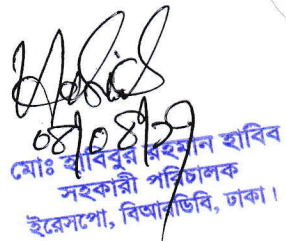 ০৪/০৪/২৭
মোঃ হাবিবুর রহমান হাবিব
সহকারী পরিচালক
ইরেসপো, বিআরডিবি, ঢাকা।